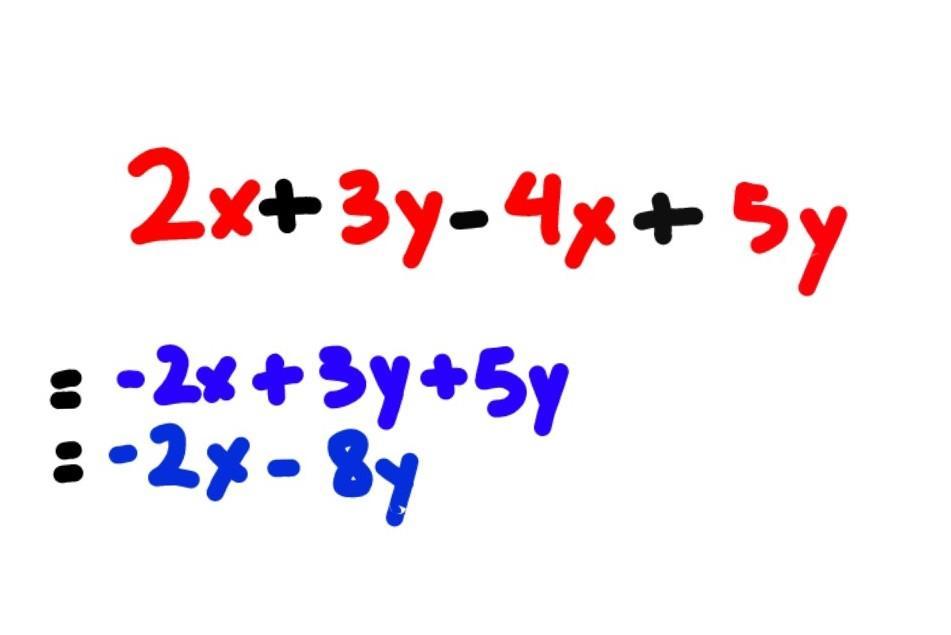 2x+3y-4x+5y
= -2x+3y+5y
= -2x-8y